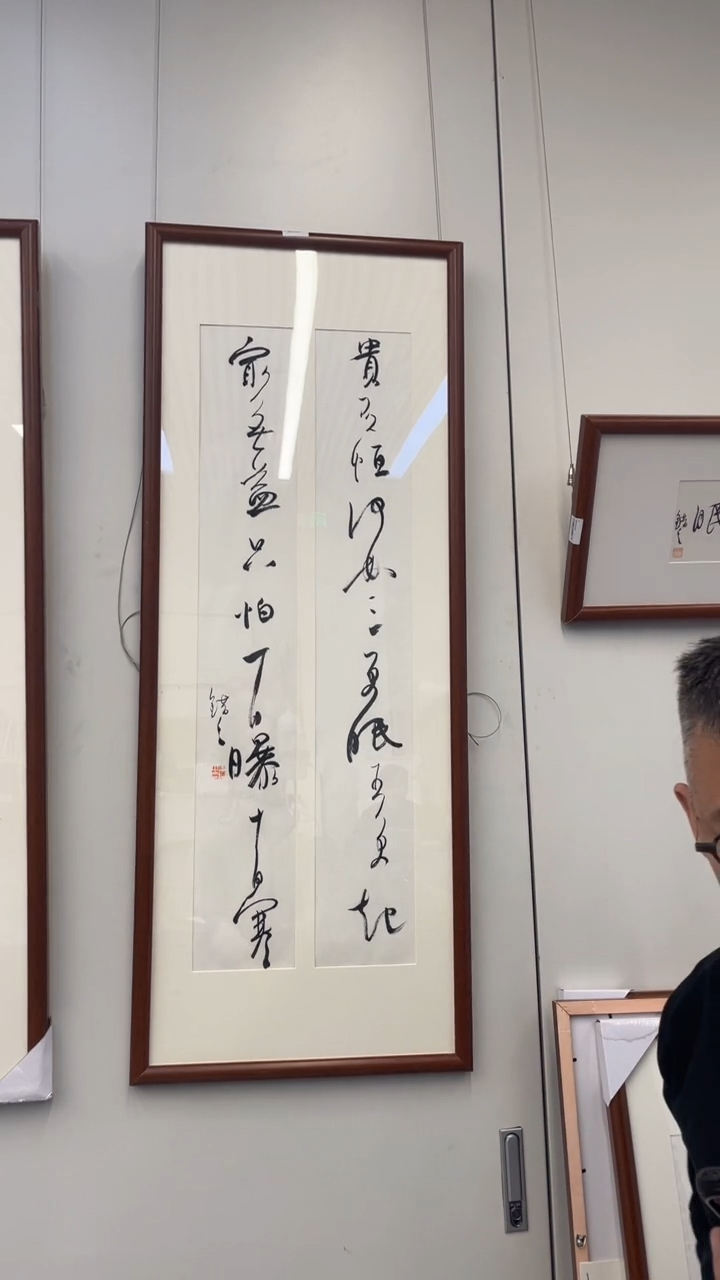 貴有恒何必三更眠五更起
最無益只怕一日曝十日寒